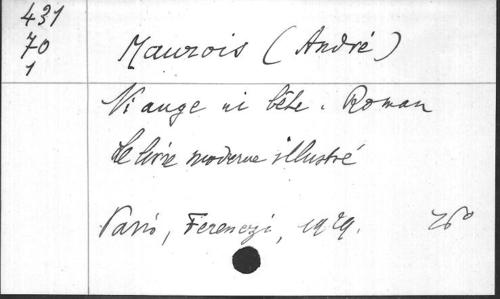 431
70
1
Maurois (André)
Ni ange ni bête. Roman
Le livre moderne illustré
Paris, Ferenczi, 1929. 26º